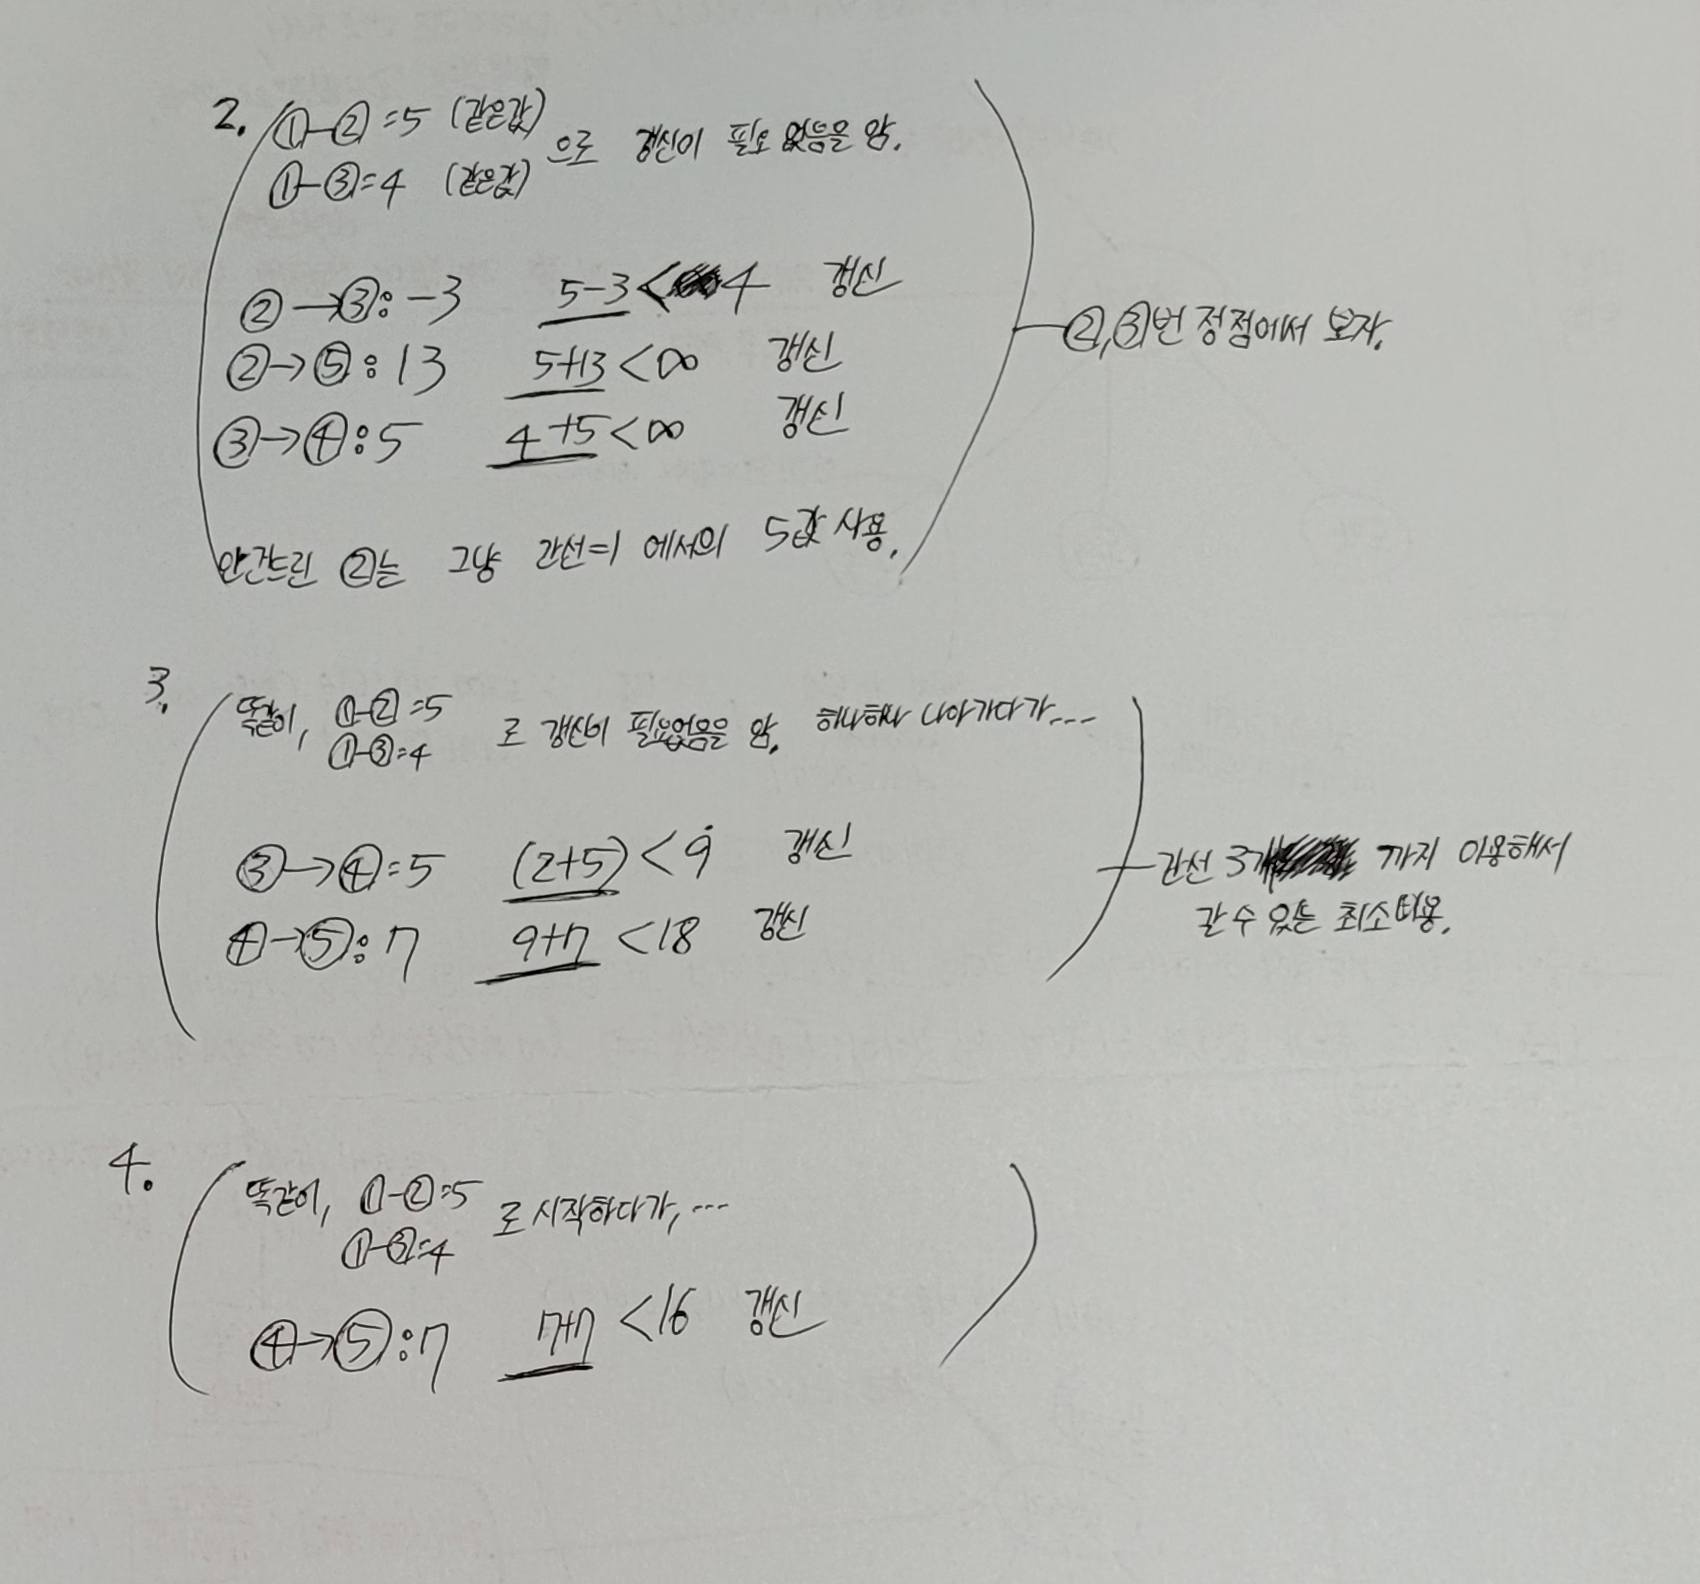 2. ①-②=5 (같은값)
①-③=4 (같은값) 으로 갱신이 필요 없음을 암.
②→③: -3 5-3<4 갱신
②→⑤: 13 5+13<∞ 갱신
③→④: 5 4+5<∞ 갱신
②,③번 정점에서 보자.
안건드린 ②는 그냥 간선=1 에서의 5값 사용.
3. 똑같이, ①-②=5
①-③=4 로 갱신이 필요없음을 암. 하나하나 나아가다가....
③→④=5 (2+5)<9 갱신
④→⑤: 7 9+7<18 갱신
간선 3개 까지 이용해서
갈 수 있는 최소비용.
4. 똑같이, ①-②=5
①-③=4 로 시작하다가,...
④→⑤: 7 7+7<16 갱신